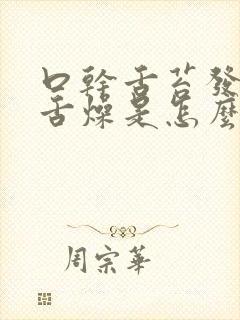 口乾舌苔發
舌燥是怎麼
周宗華